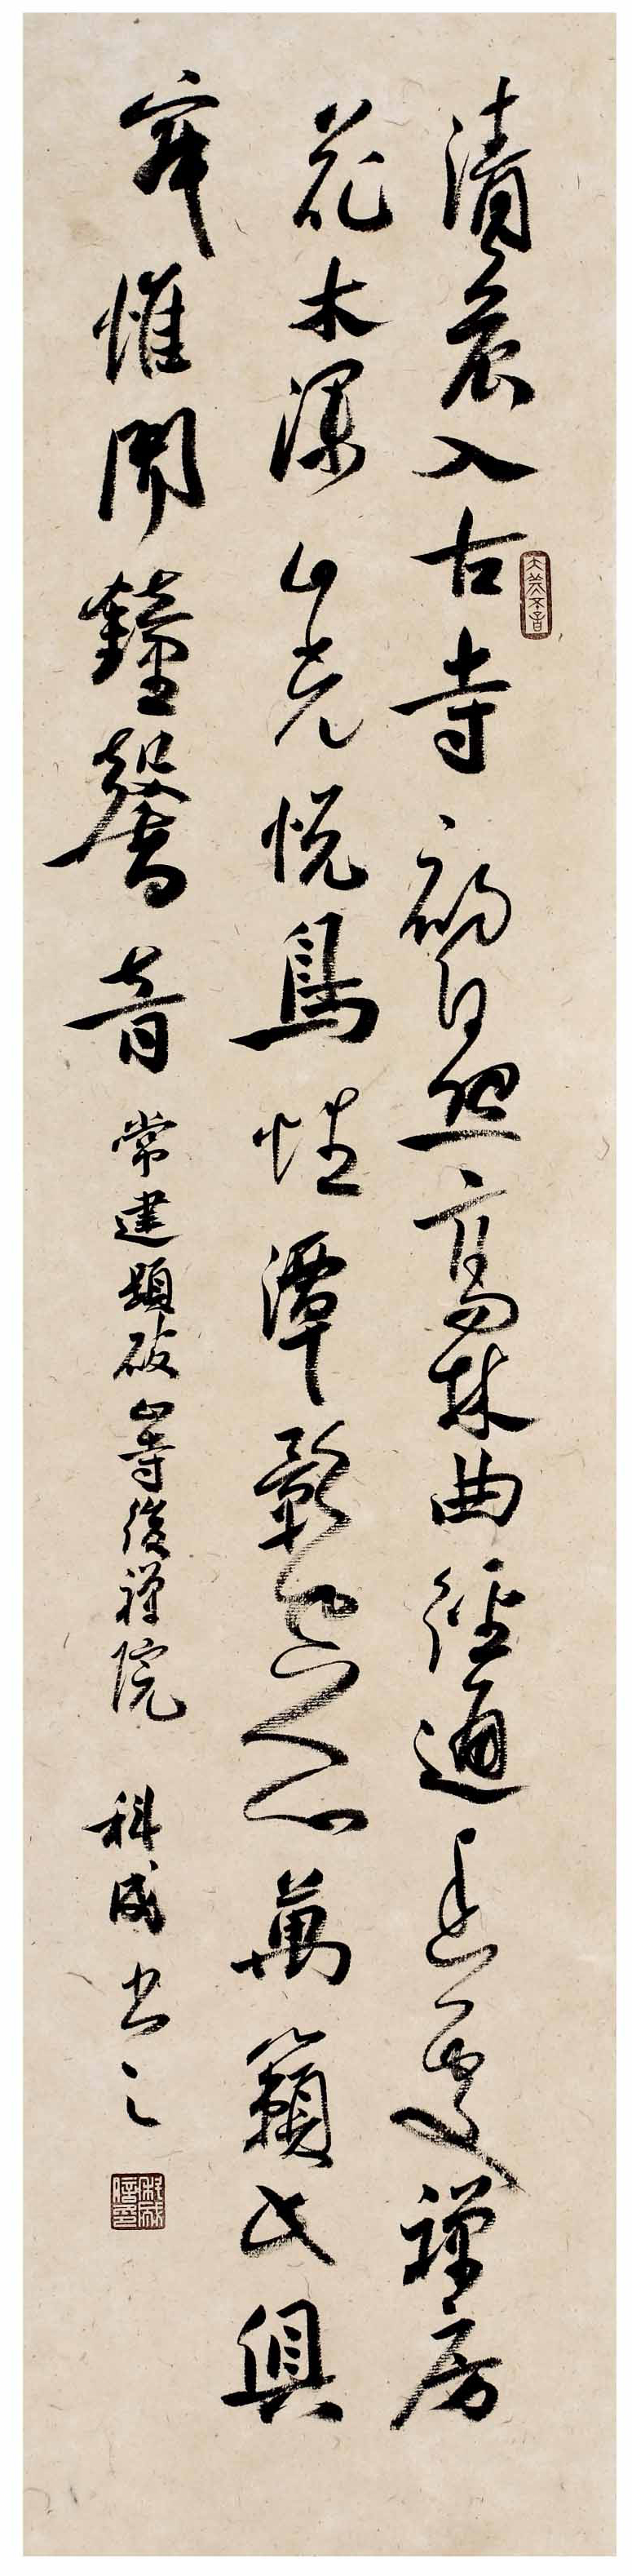 清晨入古寺初日照高林曲徑通幽處禪房
花木深山光悅鳥性潭影空人心萬籟此俱
寂惟聞鐘磬音 常建題破山寺後禪院 科成書之
大美不言